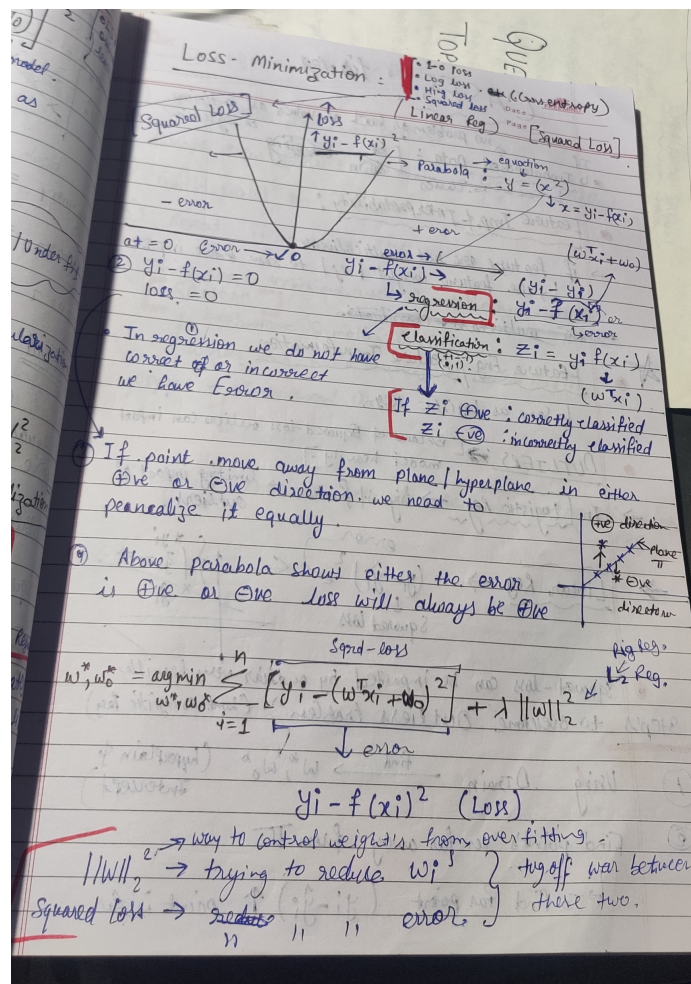 Loss-Minimization :
• 1-0 loss
• Log loss. (Cross, entropy)
• Hing loss
• Squared loss
(Linear Reg)
Date
Page
[Squared Loss]
[Squared Loss]
↑ loss
↑ yi - f(xi)²
→ Parabola → equation
: y = (x²)
↓ x = yi - f(xi)
- error
+ eror
(wᵀxi + w0)
at = 0, Error → 0
error →
② yi - f(xi) = 0
loss = 0
yi - f(xi) →
(yi - ŷi)
↳ regression : yi - f(xi)
↳ error
classification : zi = yi f(xi)
↓
(wᵀxi)
• In regression we do not have
correct or incorrect
we have Error.
If zi ⊕ve : corretly classified
zi ⊖ve : incorrectly classified
If point move away from plane/hyperplane in either
⊕ve or ⊖ve direction. we need to
peanealize it equally.
⊕ve direction
← plane π
⊖ve
directorn
④ Above parabola shows either the error
is ⊕ve or ⊖ve loss will always be ⊕ve
Sqrd-loss
Rig Reg.
L2 Reg.
w*, w0* = arg min w*, w0* Σ i=1 n [yi - (wᵀxi + w0)²] + λ ||w||₂²
↓ error
yi - f(xi)² (Loss)
→ way to control weight's from overfitting
||W||₂² → trying to reduce wi's } tug off war between
Squared loss → " " " error } these two.